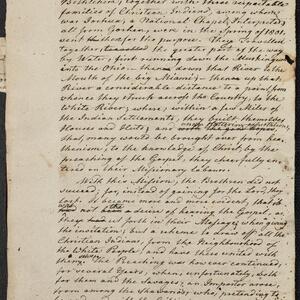 Bethlehem, together with three respectable
families of Christian Indians, among whom
was Joshua, a National Chapel Interpreter,
all from Goshen, went in the Spring of 1801.
These travelled
together, the greater part of the way
by Water, first running down the Muskingum
into the Ohio; then down that River to the
Mouth of the big Miami; thence up that
River a considerable distance to a point from
whence they struck across the Country, to the
White River, where, within a few Miles of
the Indian Settlements, they built themselves
Houses and
that many would be brought over from hea-
thenism, to the knowledge of Christ, by the
preaching of the Gospel, they cheerfully en-
tered on their Missionary labours.
With this Mission, the Brethren did not
succeed; for, instead of gaining for the Lord, they
lost. It became more and more evident, that
not been a desire of hearing the Gospel, a
forth their Message, when giving
the invitation; but a scheme to draw off all the
Christian Indians, from the Neighbourhood of
the White People, and have these united with
them. The Preaching was however continued
for several Years; when, unfortunately, both
for them and the Savages; an Impostor arose,
from among the Shawanos; who, pretending to